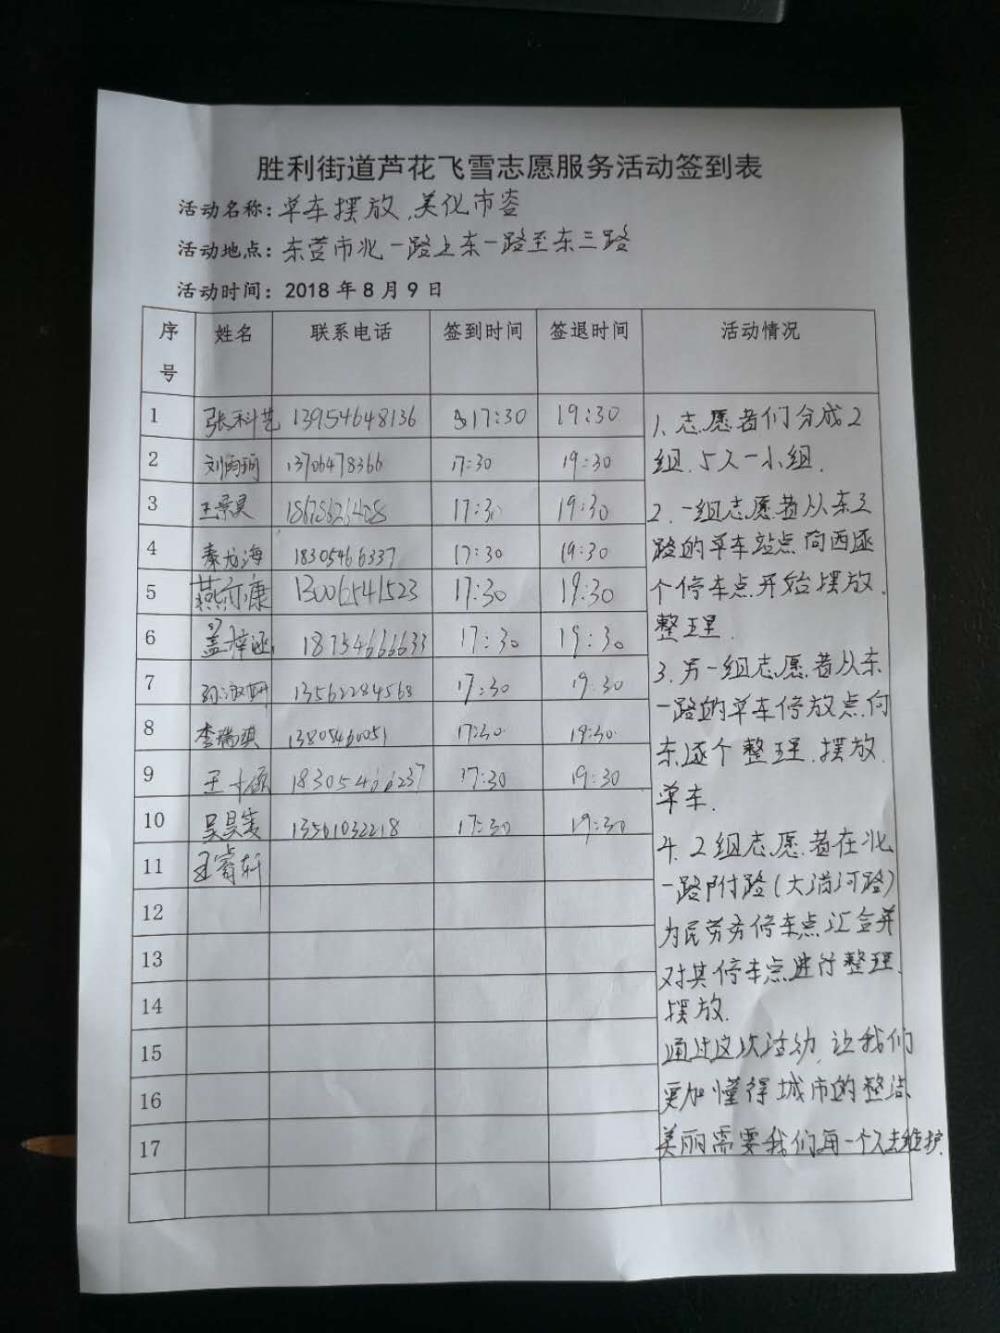 胜利街道芦花飞雪志愿服务活动签到表
活动名称：单车摆放、美化市容
活动地点：东营市北一路上东一路至东三路
活动时间：2018年8月9日
序号 姓名 联系电话 签到时间 签退时间 活动情况
1 张科艺 13954648136 17:30 19:30
2 13706478366 17:30 19:30
3 王景昊 17:30 19:30
4 秦龙海 18305466337 17:30 19:30
5 13006541523 17:30 19:30
6 盖梓涵 18754666633 17:30 19:30
7 13562284568 17:30 19:30
8 李瑞琪 13805460051 17:30 19:30
9 18305466237 17:30 19:30
10 13561032218 17:30 19:30
11 王睿轩
12
13
14
15
16
17
1、志愿者们分成2
组、5人一小组.
2、一组志愿者从东三
路的单车站点向西逐
个停车点开始摆放、
整理.
3、另一组志愿者从东
一路的单车停放点向
东逐个整理、摆放
单车.
4、2组志愿者在北
一路附路(大渦河路)
为民劳务停车点汇合并
对其停车点进行整理、
摆放.
通过这次活动,让我们
更加懂得城市的整洁、
美丽需要我们每一个人去维护.